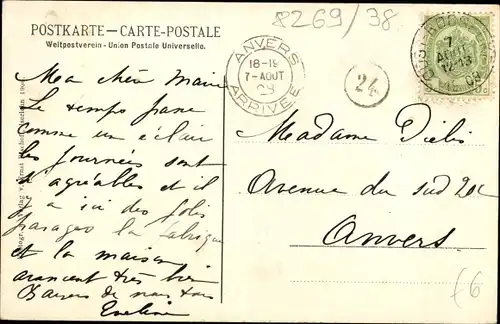 8269/38
POSTKARTE — CARTE-POSTALE
Weltpostverein - Union Postale Universelle.
ANVERS
18-19
7-AOUT
08
ARRIVÉE
24
7
AOUT
12-13
08
Ma chère Marie
Le temps passe
comme un éclair
les journées sont
d'agréables et il
y a ici des jolis
parages la fabrique
et la maison
avancent très bien
Baisers de nous tous
Eveline
Madame Diels
Avenue du sud 20
Anvers
(6